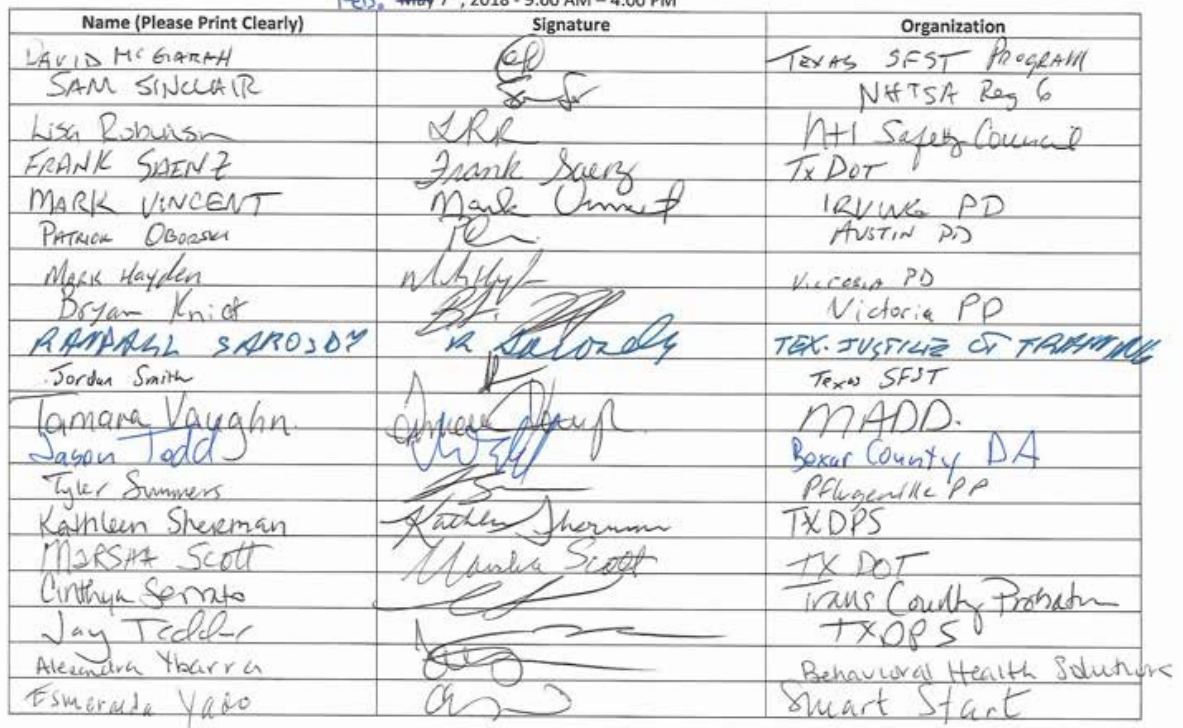 Feb. May 7, 2018 - 9:00 AM – 4:00 PM
Name (Please Print Clearly) Signature Organization
DAVID McGARAH TEXAS SFST PROGRAM
SAM SINCLAIR NHTSA Reg 6
Lisa Robinson LRR Ntl Safety Council
FRANK SAENZ Frank Saenz TxDOT
MARK VINCENT Mark Vincent IRVING PD
PATRICK OBORSKI AUSTIN PD
MARK Hayden Victoria PD
Bryan Knict Victoria PD
RANDALL SAROSDY R Sarosdy TEX. JUSTICE CT TRAINING
Jordan Smith Texas SFST
Tamara Vaughn. MADD.
Jason Todd Bexar County DA
Tyler Summers Pflugerville PD
Kathleen Sherman Kathleen Sherman TXDPS
MARSHA Scott Marsha Scott TX DOT
Cinthya Serrato Travis County Probation
Jay Tedder TXDPS
Alexandra Ybarra Behavioral Health Solutions
Esmeralda Smart Start